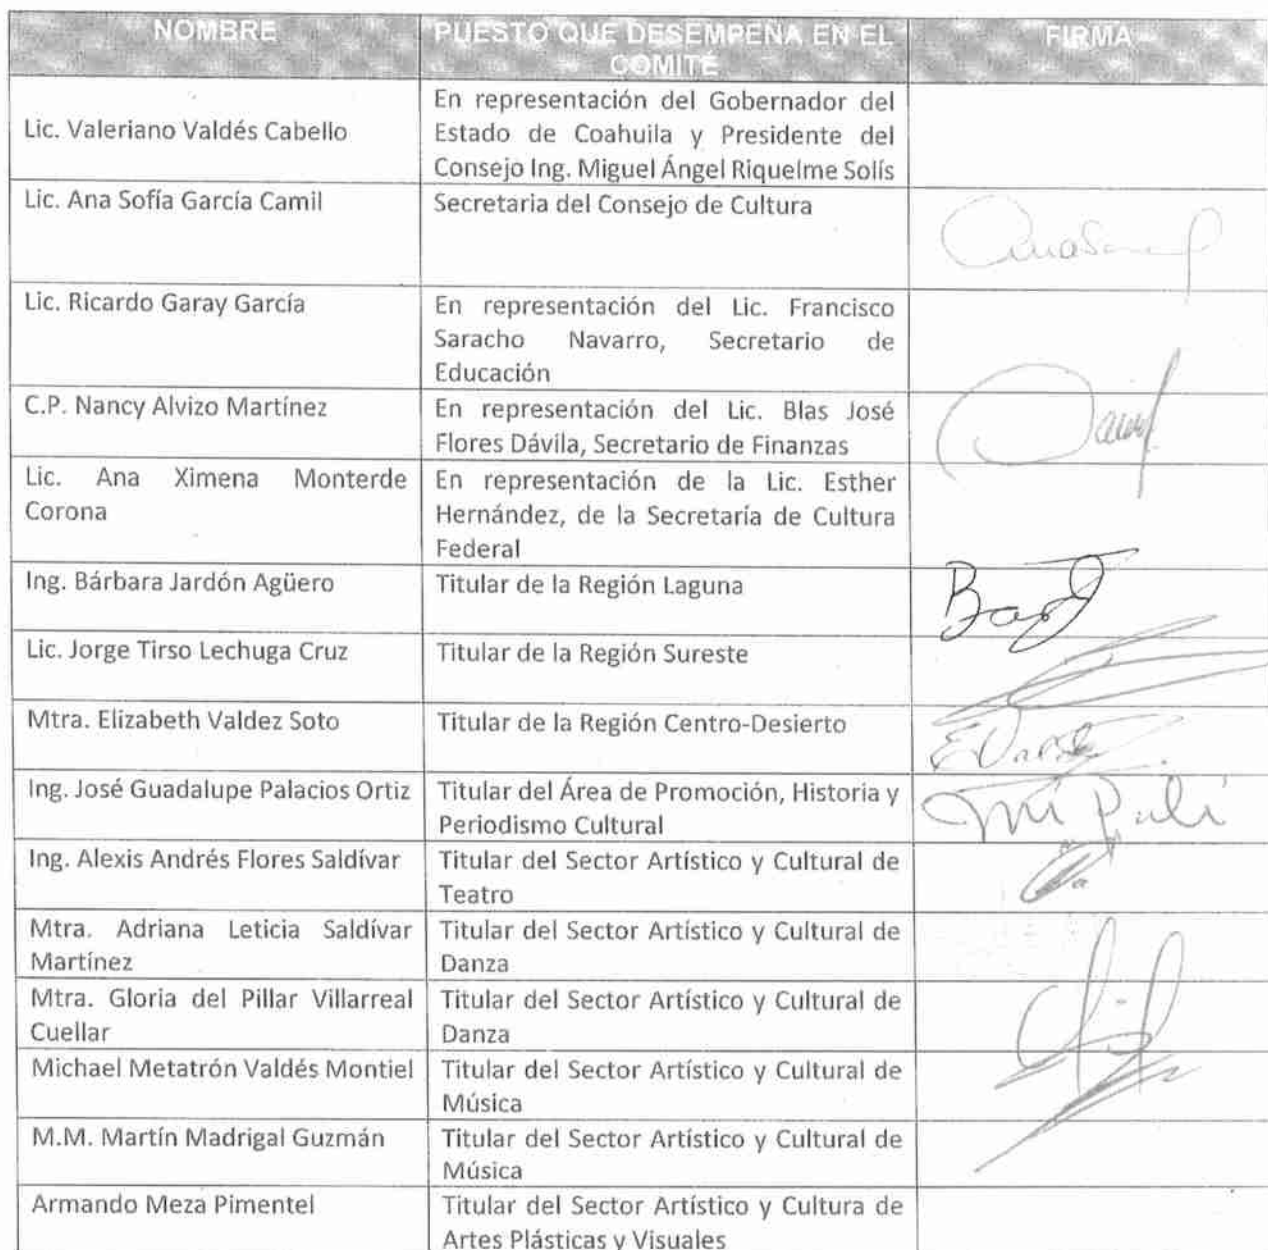 NOMBRE
PUESTO QUE DESEMPEÑA EN EL
COMITÉ
FIRMA
Lic. Valeriano Valdés Cabello
En representación del Gobernador del
Estado de Coahuila y Presidente del
Consejo Ing. Miguel Ángel Riquelme Solís
Lic. Ana Sofía García Camil
Secretaria del Consejo de Cultura
Lic. Ricardo Garay García
En representación del Lic. Francisco
Saracho Navarro, Secretario de
Educación
C.P. Nancy Alvizo Martínez
En representación del Lic. Blas José
Flores Dávila, Secretario de Finanzas
Lic. Ana Ximena Monterde
Corona
En representación de la Lic. Esther
Hernández, de la Secretaría de Cultura
Federal
Ing. Bárbara Jardón Agüero
Titular de la Región Laguna
Lic. Jorge Tirso Lechuga Cruz
Titular de la Región Sureste
Mtra. Elizabeth Valdez Soto
Titular de la Región Centro-Desierto
Ing. José Guadalupe Palacios Ortiz
Titular del Área de Promoción, Historia y
Periodismo Cultural
Ing. Alexis Andrés Flores Saldívar
Titular del Sector Artístico y Cultural de
Teatro
Mtra. Adriana Leticia Saldívar
Martínez
Titular del Sector Artístico y Cultural de
Danza
Mtra. Gloria del Pillar Villarreal
Cuellar
Titular del Sector Artístico y Cultural de
Danza
Michael Metatrón Valdés Montiel
Titular del Sector Artístico y Cultural de
Música
M.M. Martín Madrigal Guzmán
Titular del Sector Artístico y Cultural de
Música
Armando Meza Pimentel
Titular del Sector Artístico y Cultura de
Artes Plásticas y Visuales